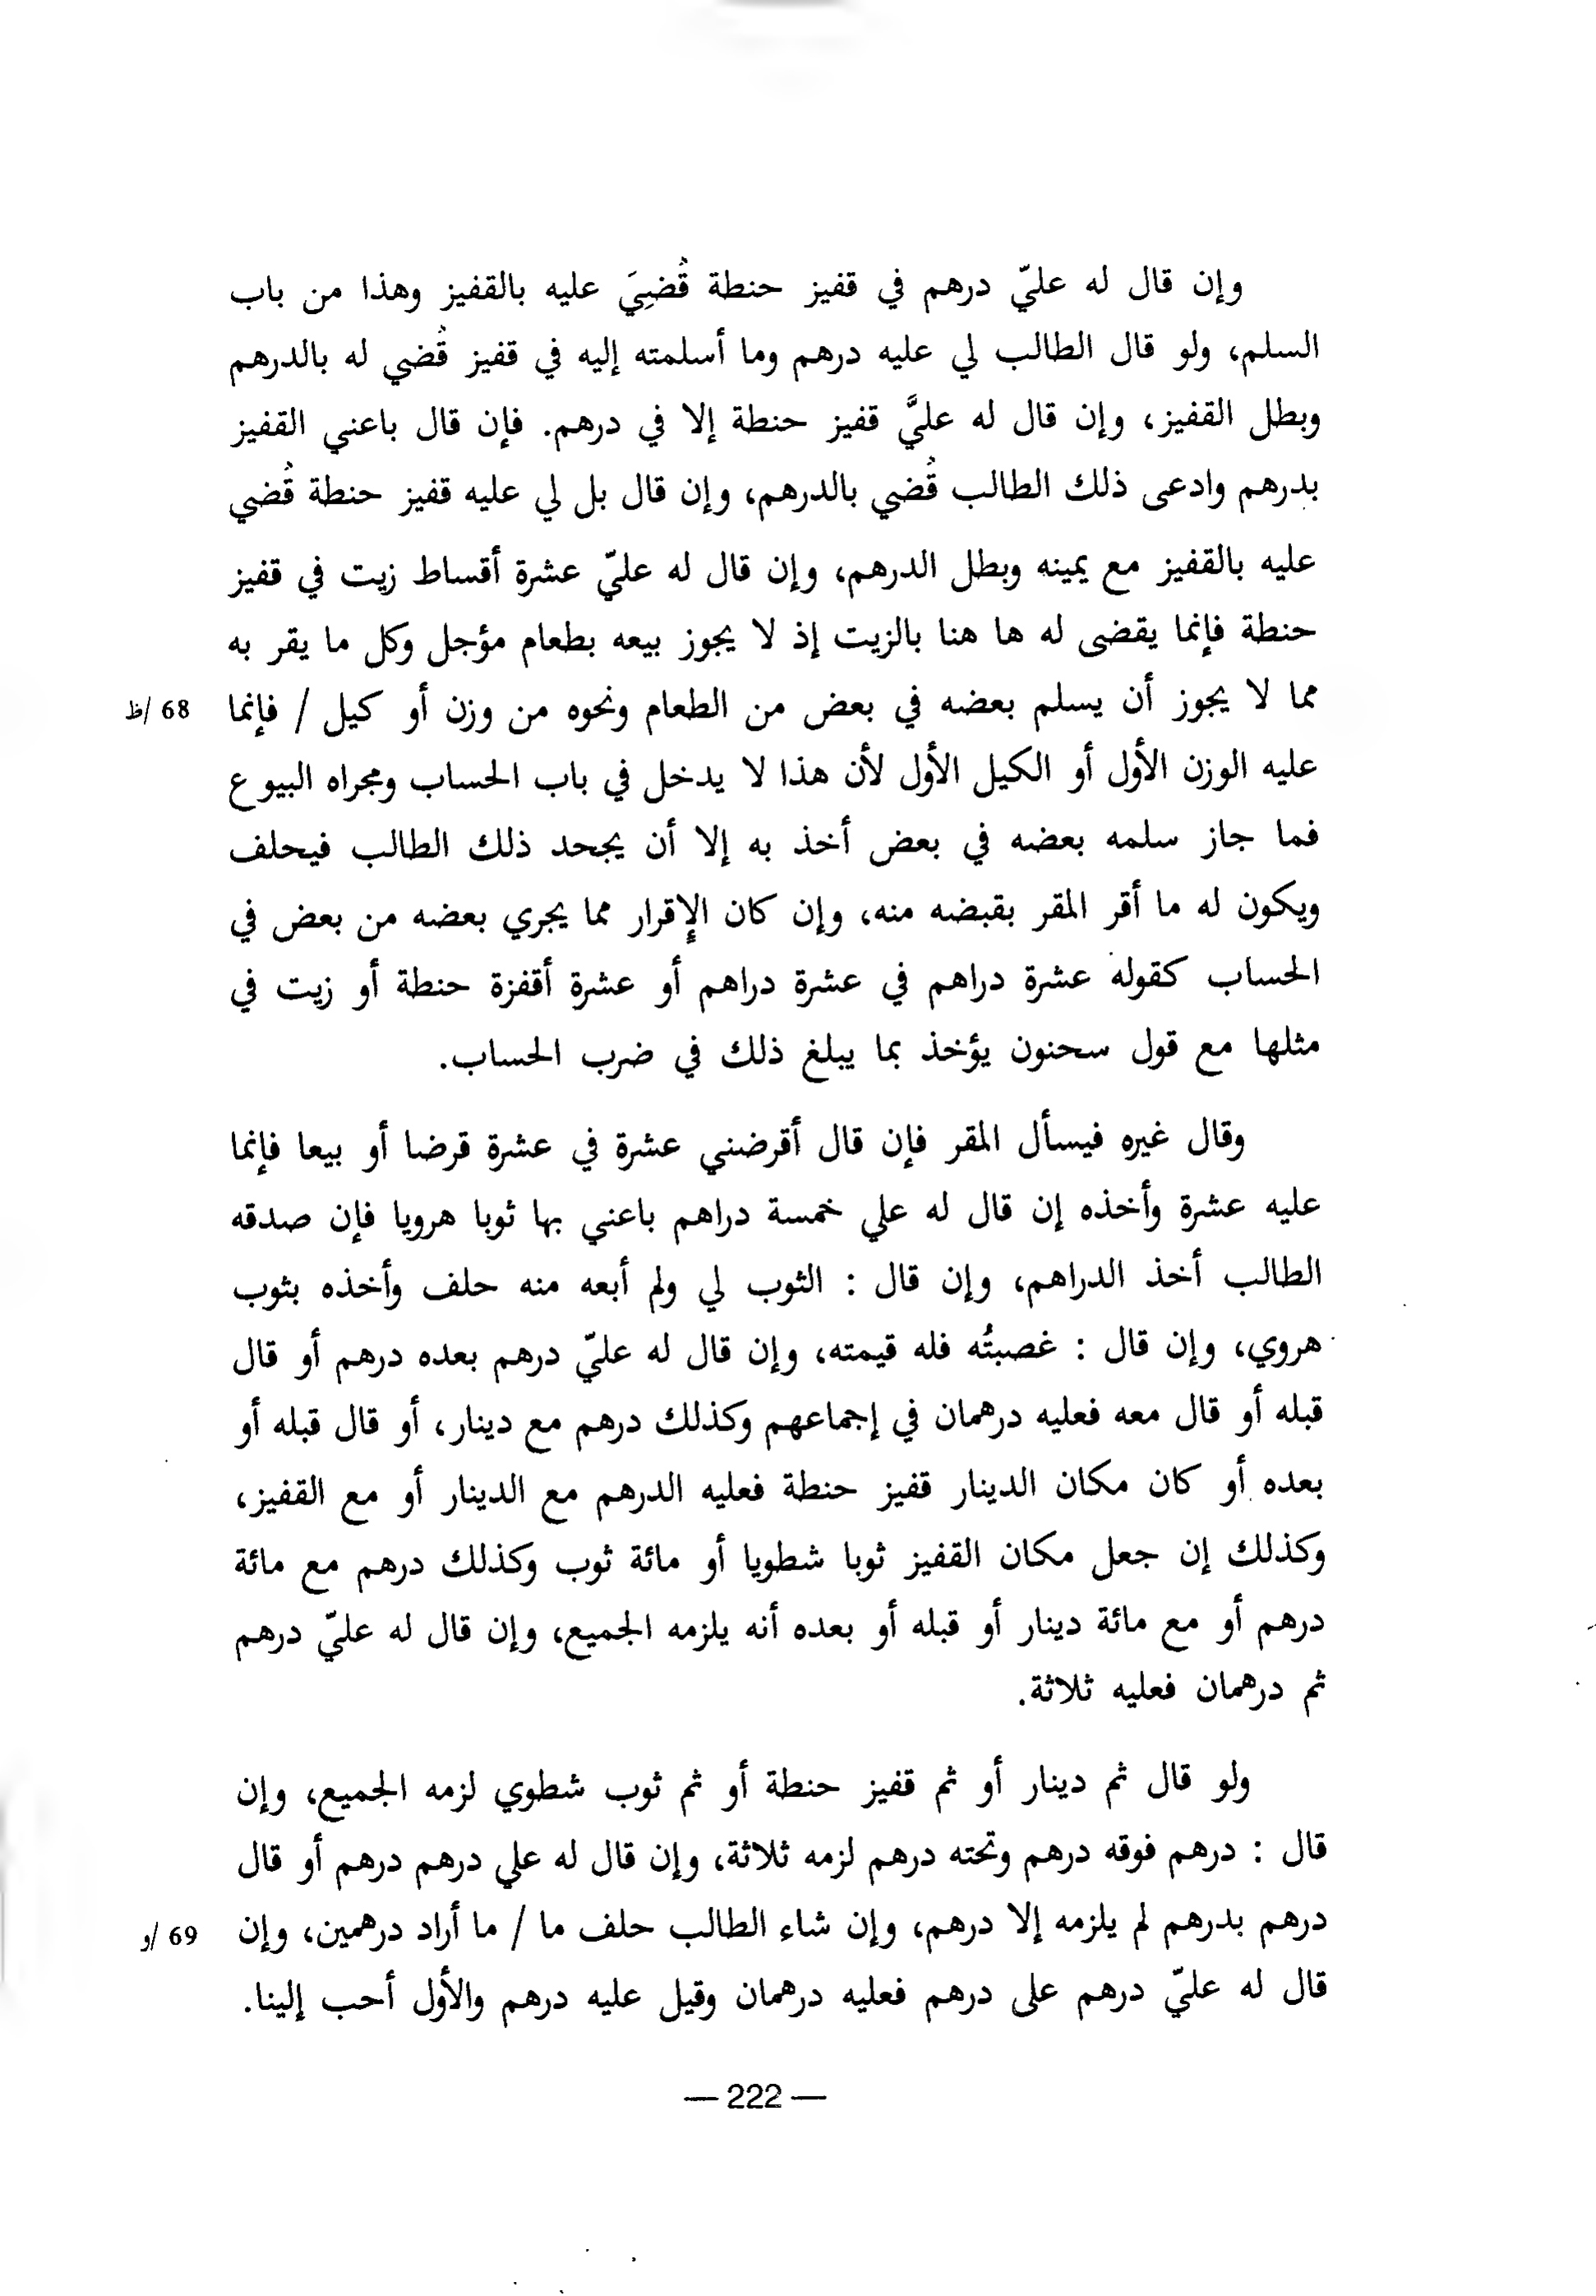 وإن قال له عليّ درهم في قفيز حنطة قُضِيَ عليه بالقفيز وهذا من باب
السلم، ولو قال الطالب لي عليه درهم وما أسلمته إليه في قفيز قُضي له بالدرهم
وبطل القفيز، وإن قال له عليَّ قفيز حنطة إلا في درهم. فإن قال باعني القفيز
بدرهم وادعى ذلك الطالب قُضي بالدرهم، وإن قال بل لي عليه قفيز حنطة قُضي
عليه بالقفيز مع يمينه وبطل الدرهم، وإن قال له عليّ عشرة أقساط زيت في قفيز
حنطة فإنما يقضى له ها هنا بالزيت إذ لا يجوز بيعه بطعام مؤجل وكل ما يقر به
مما لا يجوز أن يسلم بعضه في بعض من الطعام ونحوه من وزن أو كيل / فإنما 68 /ظ
عليه الوزن الأول أو الكيل الأول لأن هذا لا يدخل في باب الحساب ومجراه البيوع
فما جاز سلمه بعضه في بعض أخذ به إلا أن يجحد ذلك الطالب فيحلف
ويكون له ما أقر المقر بقبضه منه، وإن كان الإقرار مما يجري بعضه من بعض في
الحساب كقوله عشرة دراهم في عشرة دراهم أو عشرة أقفزة حنطة أو زيت في
مثلها مع قول سحنون يؤخذ بما يبلغ ذلك في ضرب الحساب.
وقال غيره فيسأل المقر فإن قال أقرضني عشرة في عشرة قرضا أو بيعا فإنما
عليه عشرة وأخذه إن قال له علي خمسة دراهم باعني بها ثوبا هرويا فإن صدقه
الطالب أخذ الدراهم، وإن قال : الثوب لي ولم أبعه منه حلف وأخذه بثوب
هروي، وإن قال : غصبتُه فله قيمته، وإن قال له عليّ درهم بعده درهم أو قال
قبله أو قال معه فعليه درهمان في إجماعهم وكذلك درهم مع دينار، أو قال قبله أو
بعده أو كان مكان الدينار قفيز حنطة فعليه الدرهم مع الدينار أو مع القفيز،
وكذلك إن جعل مكان القفيز ثوبا شطويا أو مائة ثوب وكذلك درهم مع مائة
درهم أو مع مائة دينار أو قبله أو بعده أنه يلزمه الجميع، وإن قال له عليّ درهم
ثم درهمان فعليه ثلاثة.
ولو قال ثم دينار أو ثم قفيز حنطة أو ثم ثوب شطوي لزمه الجميع، وإن
قال : درهم فوقه درهم وتحته درهم لزمه ثلاثة، وإن قال له علي درهم درهم أو قال
درهم بدرهم لم يلزمه إلا درهم، وإن شاء الطالب حلف ما / ما أراد درهمين، وإن 69 /و
قال له عليّ درهم على درهم فعليه درهمان وقيل عليه درهم والأول أحب إلينا.
— 222 —